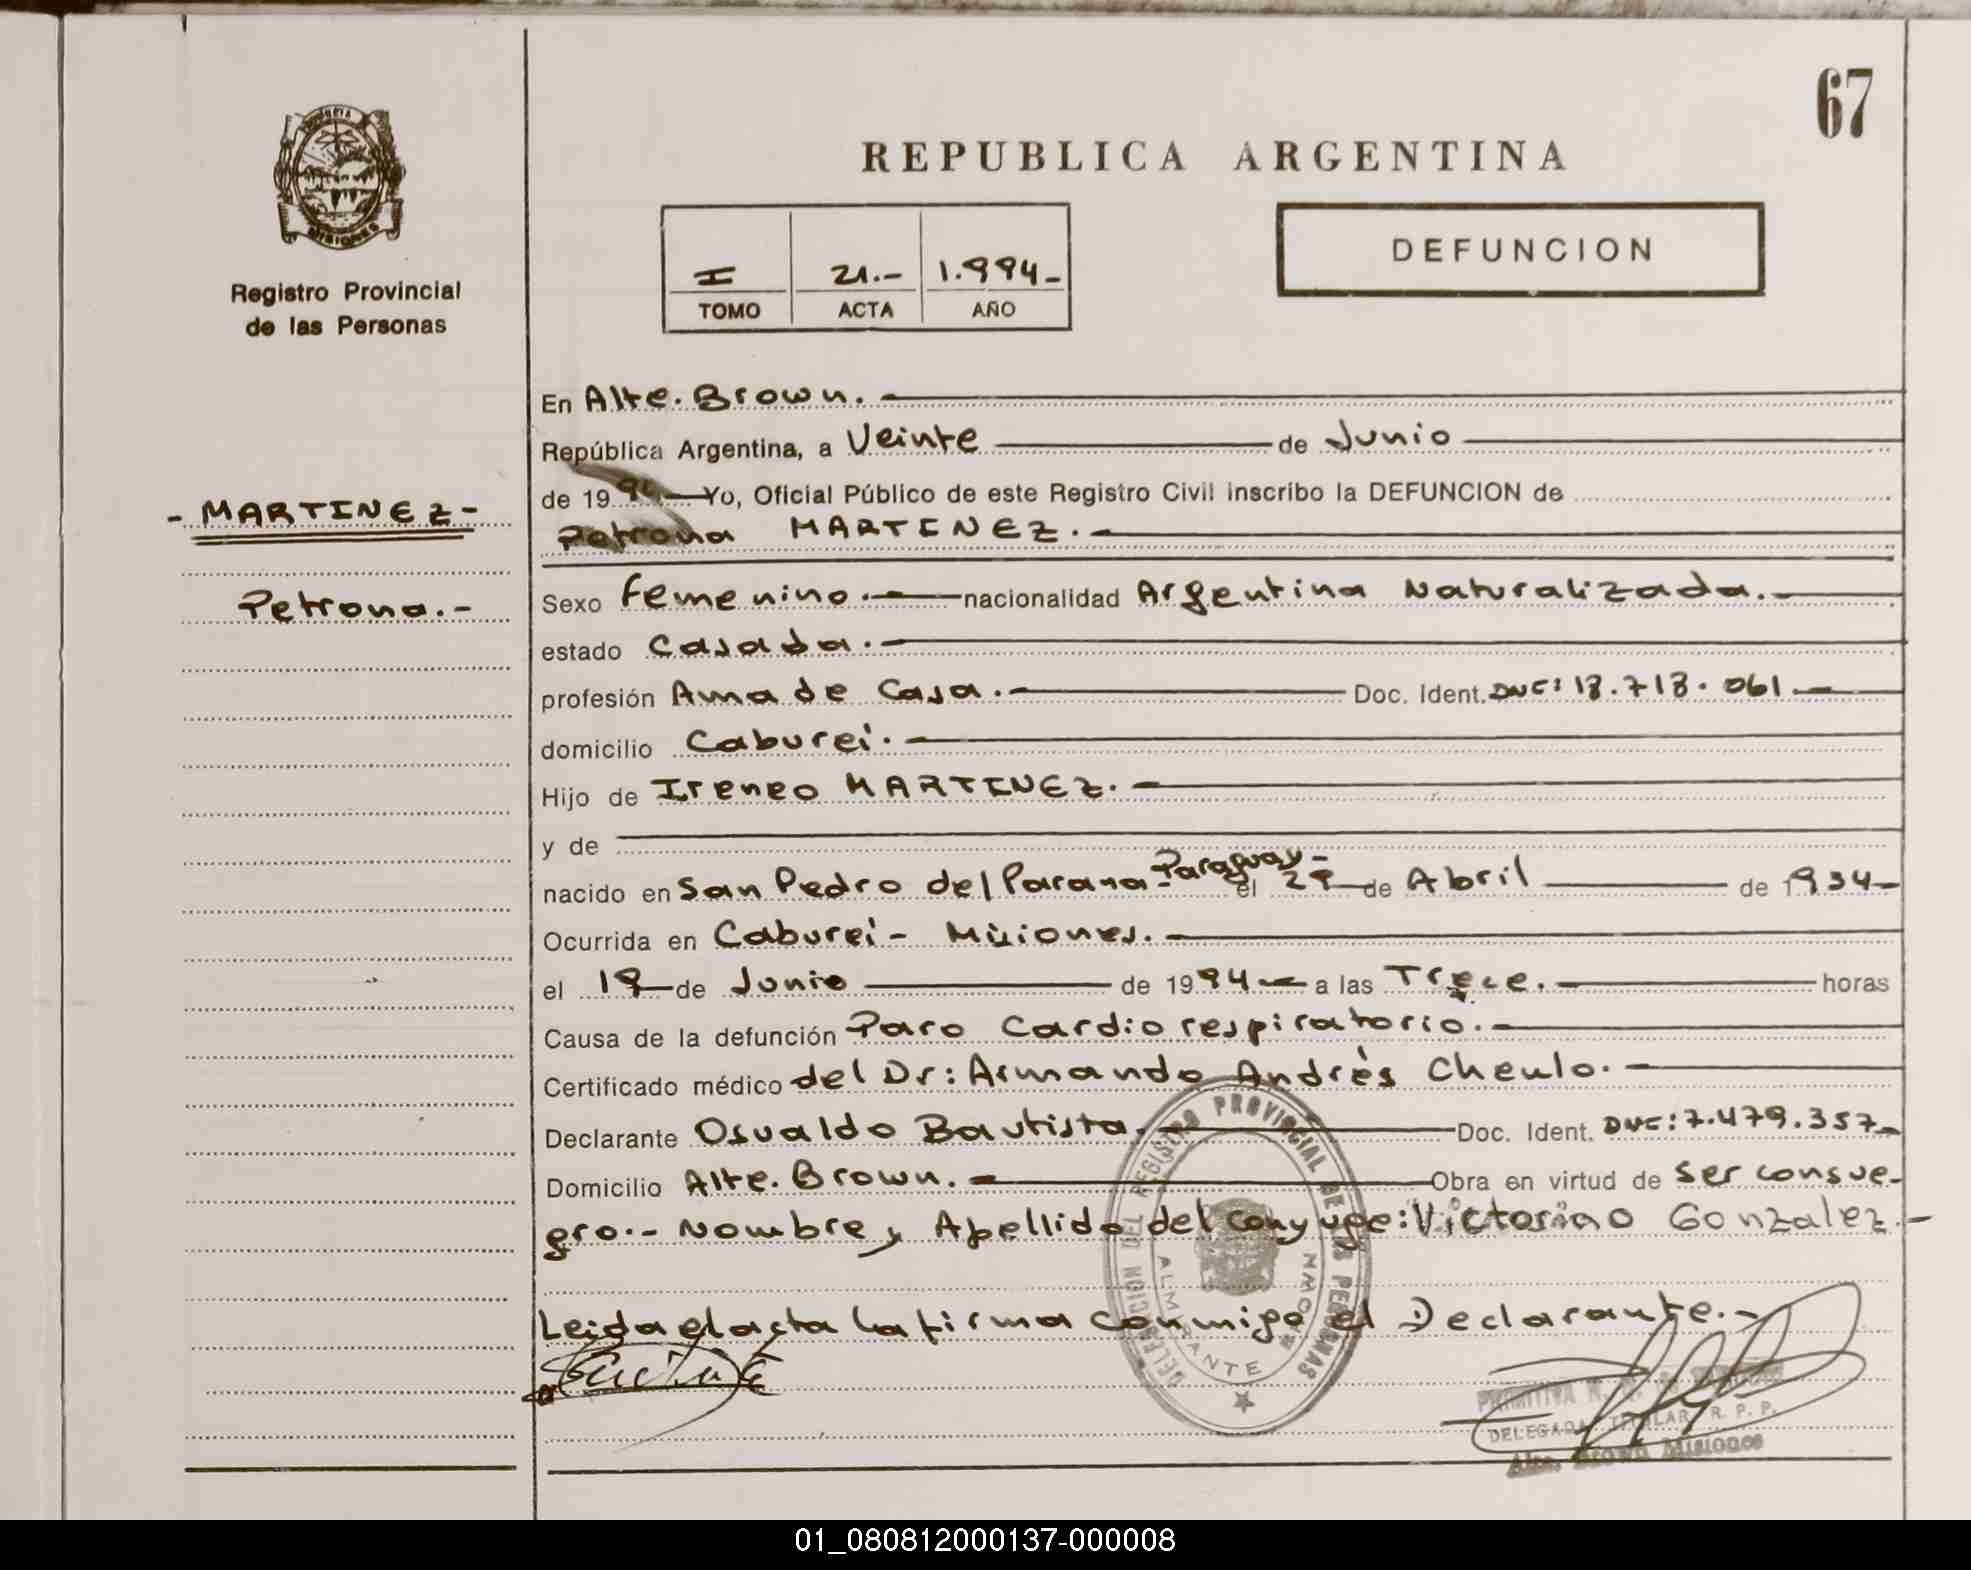 67
REPUBLICA ARGENTINA
DEFUNCION
I 21.- 1.994-
TOMO ACTA AÑO
MISIONES
Registro Provincial
de las Personas
- MARTINEZ -
Petrona.-
En Alte. Brown.
República Argentina, a Veinte de Junio
de 1994 Yo, Oficial Público de este Registro Civil inscribo la DEFUNCION de
Petrona MARTINEZ.
Sexo Femenino. nacionalidad Argentina Naturalizada.
estado Casada.
profesión Ama de Casa. Doc. Ident. DNI: 18.718.061.
domicilio Caburei.
Hijo de Ireneo MARTINEZ.
y de
nacido en San Pedro del Parana-Paraguay- el 29 de Abril de 1934
Ocurrida en Caburei- Misiones.
el 19 de Junio de 1994 a las Trece. horas
Causa de la defunción Paro Cardiorespiratorio.
Certificado médico del Dr: Armando Andrès Cheulo.
Declarante Osvaldo Bautista. Doc. Ident. DNI: 7.479.357
Domicilio Alte. Brown. Obra en virtud de ser consue-
gro.- Nombre y Apellido del conyuge: Victoriano Gonzalez.-
Leida el acta la firma conmigo el Declarante.-
DELEGACION DEL REGISTRO PROVINCIAL DE LAS PERSONAS
ALMIRANTE BROWN
PRIMITIVA
DELEGADA TITULAR R. P. P.
Alte. Brown Misiones
01_080812000137-000008